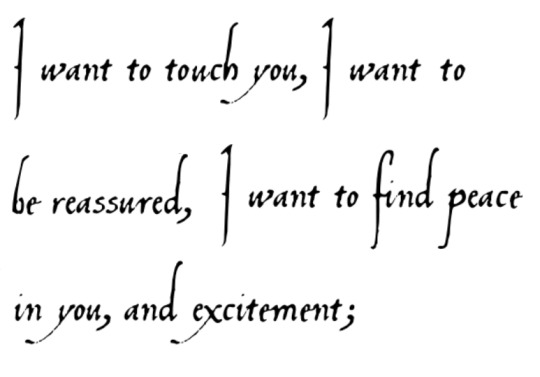 I want to touch you, I want to
be reassured, I want to find peace
in you, and excitement;